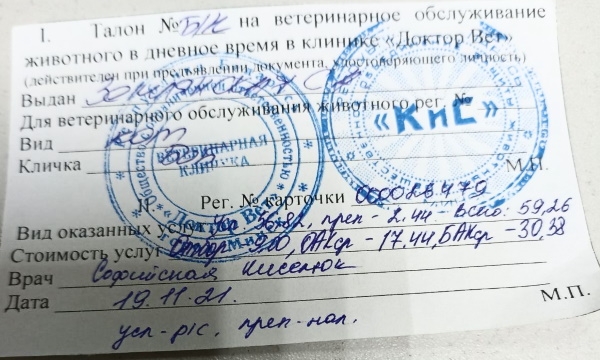 I. Талон № Б/К на ветеринарное обслуживание
животного в дневное время в клинике «Доктор Вет»
(действителен при предъявлении документа, удостоверяющего личность)
Выдан
Для ветеринарного обслуживания животного рег. №
Вид кот
Кличка М.П.
ВЕТЕРИНАРНАЯ
КЛИНИКА
«Доктор Вет»
«КиС»
II. Рег. № карточки 000028479
Вид оказанных услуг Ур 56.82, преп - 2.44 - всего: 59,26
Стоимость услуг - 17.44, - 30,38
Врач Софийская Киселюк
Дата 19.11.21. М.П.
усл-р/с, преп-нал.